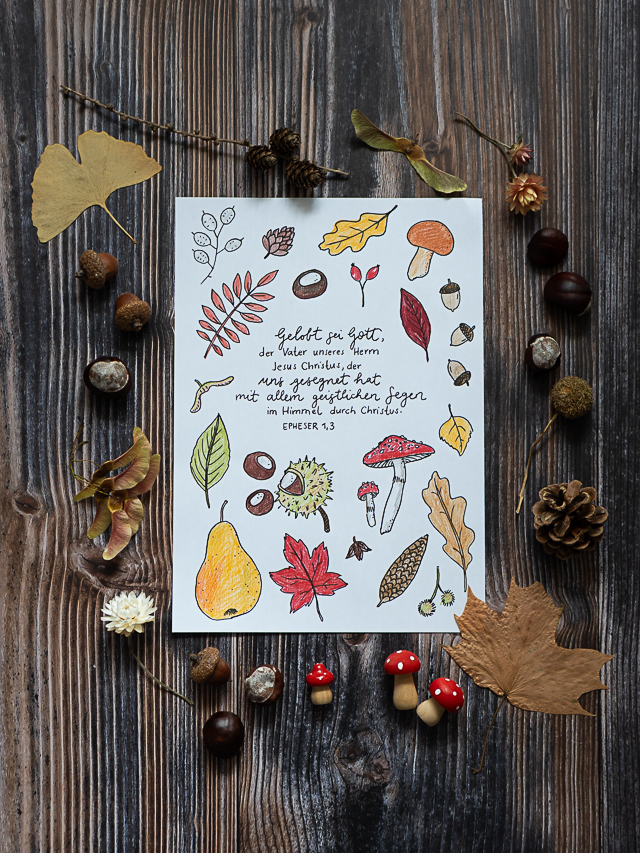 Gelobt sei Gott,
der Vater unseres Herrn
Jesus Christus, der
uns gesegnet hat
mit allem geistlichen Segen
im Himmel durch Christus.
EPHESER 1,3